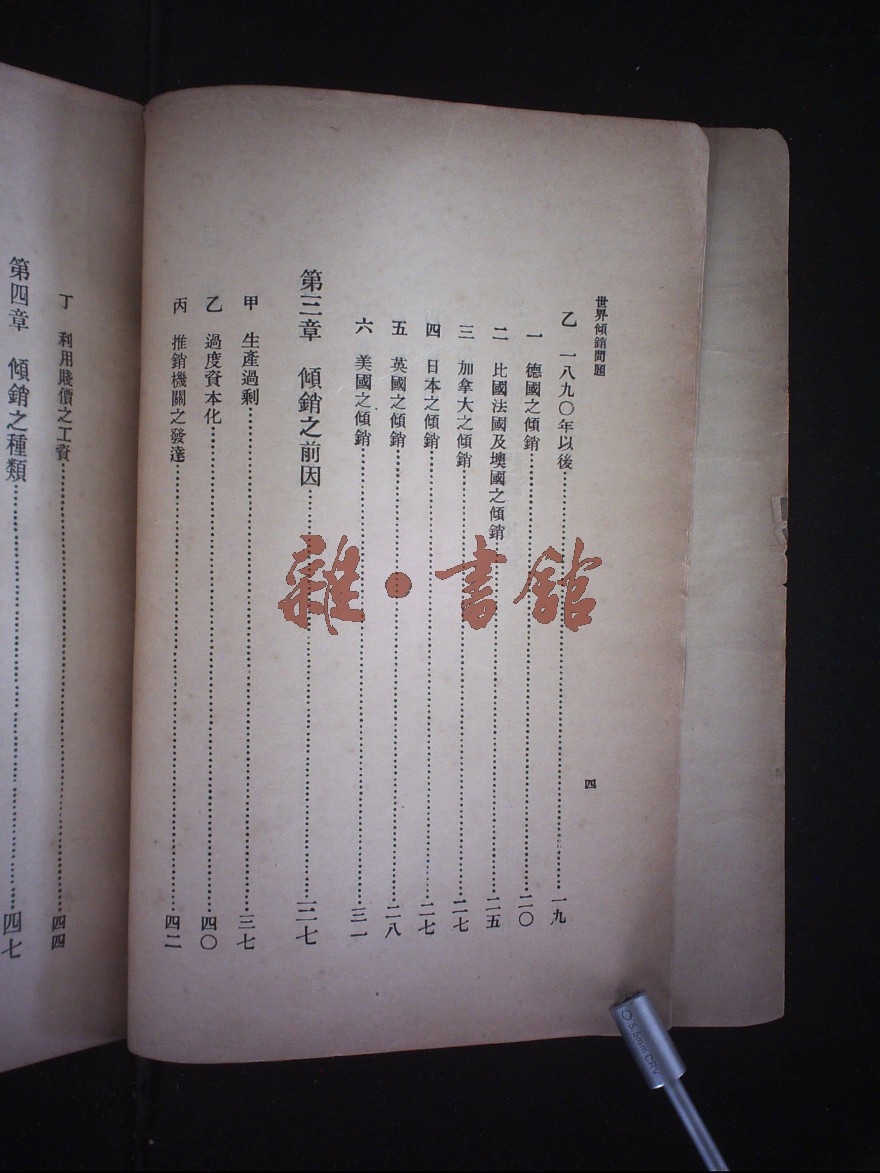 世界傾銷問題
四
乙 一八九〇年以後 一九
一 德國之傾銷 二〇
二 比國法國及墺國之傾銷 二五
三 加拿大之傾銷 二七
四 日本之傾銷 二七
五 英國之傾銷 二八
六 美國之傾銷 三一
第三章 傾銷之前因 三七
甲 生產過剩 三七
乙 過度資本化 四〇
丙 推銷機關之發達 四二
丁 利用賤價之工資 四四
第四章 傾銷之種類 四七
雜·書館
5.5mm CRV